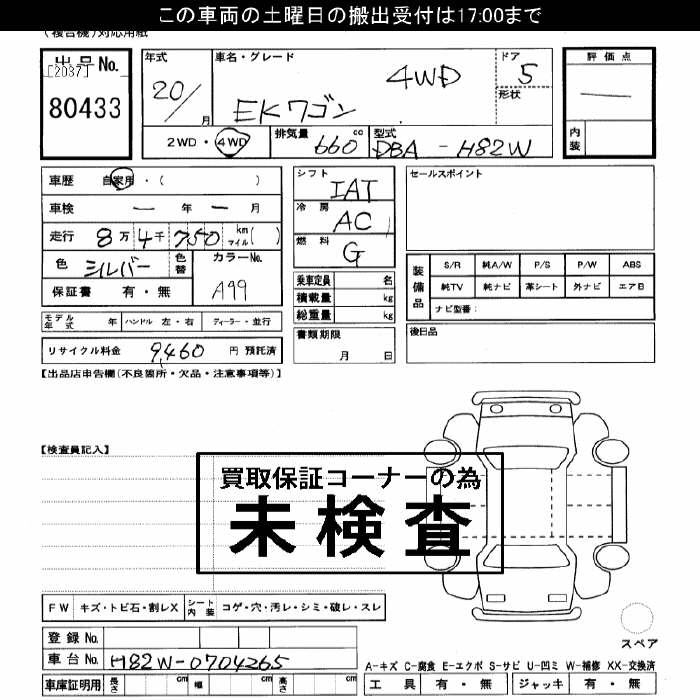 この車両の土曜日の搬出受付は17:00まで
(複合機)対応用紙
出品No. [2037] 80433
年式 20/ 月
車名・グレード EKワゴン 4WD
ドア 5 形状
評価点 —
内装
2WD・4WD 排気量 660 cc 型式 DBA - H82W
車歴 自家用・( )
車検 — 年 — 月
走行 8万 4千 750 km マイル( )
色 シルバー 色替 カラーNo. A99
保証書 有・無
シフト IAT
冷房 AC
燃料 G
乗車定員 名
積載量 kg
総重量 kg
セールスポイント
装備品 S/R 純A/W P/S P/W ABS
純TV 純ナビ 革シート 外ナビ エアB
ナビ型番:
モデル年式 年 ハンドル 左・右 ディーラー・並行
書類期限 月 日
後日品
リサイクル料金 9,460 円 預託済
【出品店申告欄(不良箇所・欠品・注意事項等)】
【検査員記入】
買取保証コーナーの為
未検査
FW キズ・トビ石・割レX シート内装 コゲ・穴・汚レ・シミ・破レ・スレ
スペア
登録No.
車台No. H82W-0704265
A-キズ C-腐食 E-エクボ S-サビ U-凹ミ W-補修 XX-交換済
車庫証明用 長さ cm 幅 cm 高さ cm
工具 有・無 ジャッキ 有・無